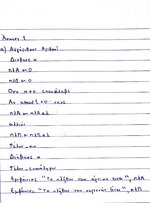 Άσκηση 1
α) Αλγόριθμος Αριθμοί
Διάβασε x
πλΑ ← 0
πλΠ ← 0
Όσο x ≠ 0 επανάλαβε
Αν x mod 2 = 0 τότε
πλΑ ← πλΑ + 1
αλλιώς
πλΠ ← πλΠ + 1
Τέλος_αν
Διάβασε x
Τέλος_επανάληψης
Εμφάνισε "Το πλήθος των άρτιων είναι", πλΑ
Εμφάνισε "Το πλήθος των περιττών είναι", πλΠ